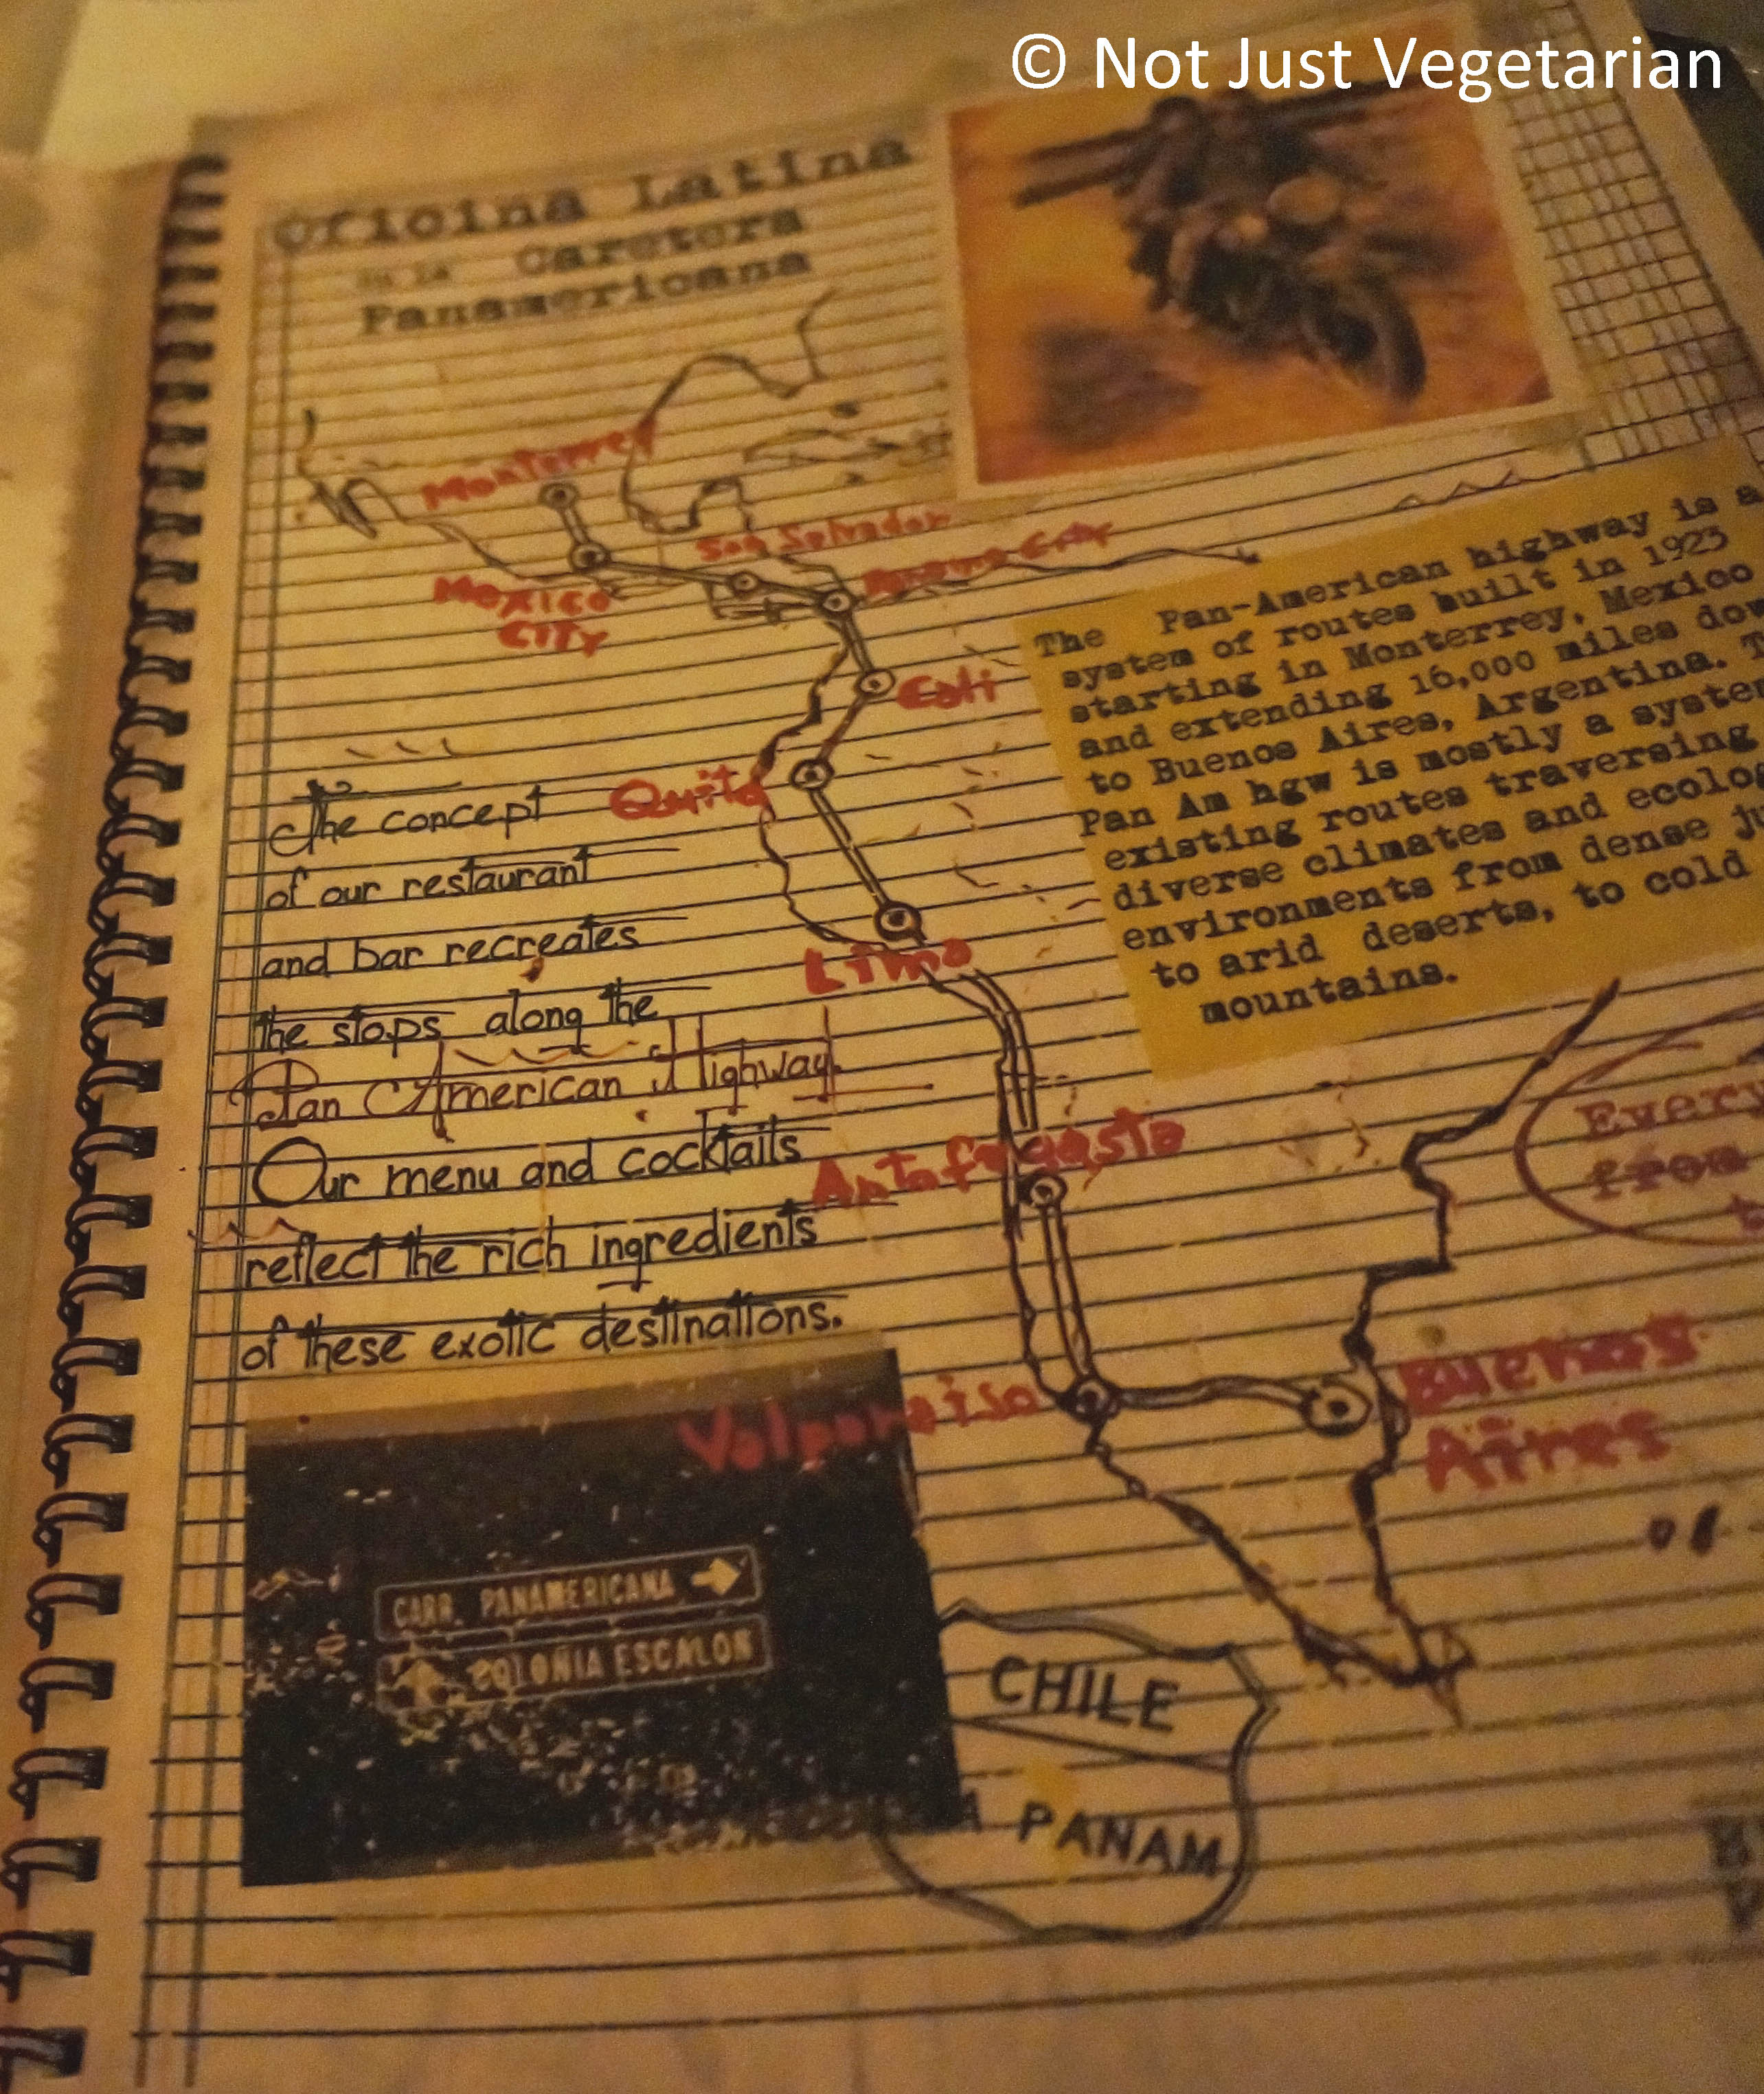 © Not Just Vegetarian
Oficina Latina
en la Caretera
Panamericana
Monterrey
San Salvador
Panama City
Mexico
City
Cali
Quito
Lima
Antofagasta
Valparaiso
Buenos
Aires
The Pan-American highway is a
system of routes built in 1923
starting in Monterrey, Mexico
and extending 16,000 miles
to Buenos Aires, Argentina.
Pan Am hgw is mostly a
existing routes traversing
diverse climates and
environments from dense
to arid deserts, to cold
mountains.
The concept
of our restaurant
and bar recreates
the stops along the
Pan American Highway.
Our menu and cocktails
reflect the rich ingredients
of these exotic destinations.
from
CARR. PANAMERICANA
COLONIA ESCALON
CHILE
PANAM